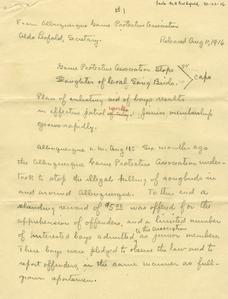 #1
From Albuquerque Game Protective Association
Aldo Leopold, Secretary. Released Aug 11, 1916
Game Protective Association Stops
Slaughter of Local Song Birds. caps
Plan of enlisting aid of boys results
in effective patrol of Junior membership
grows rapidly.
Albuquerque, N.M. Aug Six months ago
the Albuquerque Game Protective Association under-
took to stop the illegal killing of songbirds in
and around Albuquerque. To this end a
standing reward of $5.00 was offered for the
apprehension of offenders, and a limited number
of interested boys admitted to the Association as junior members
These boys were pledged to observe the law and to
report offenders, in the same manner as full-
grown sportsmen.